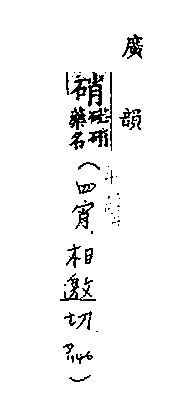 廣韻
硝 硭硝藥名（四宵．相邀切．P.146）